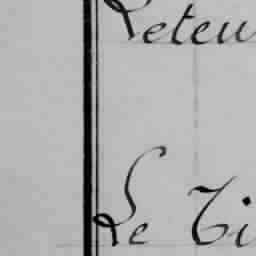 Leteu
Le Ti